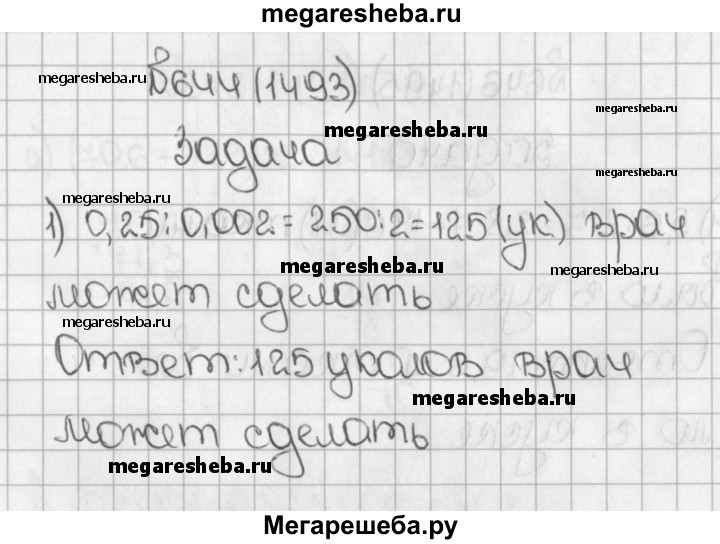 megaresheba.ru
№644 (1493)
megaresheba.ru
megaresheba.ru
Задача
megaresheba.ru
megaresheba.ru
megaresheba.ru
1) 0,25:0,002=250:2=125(ук) врач
megaresheba.ru
megaresheba.ru
может сделать
megaresheba.ru
Ответ:125 уколов врач
megaresheba.ru
может сделать
megaresheba.ru
Мегарешеба.ру